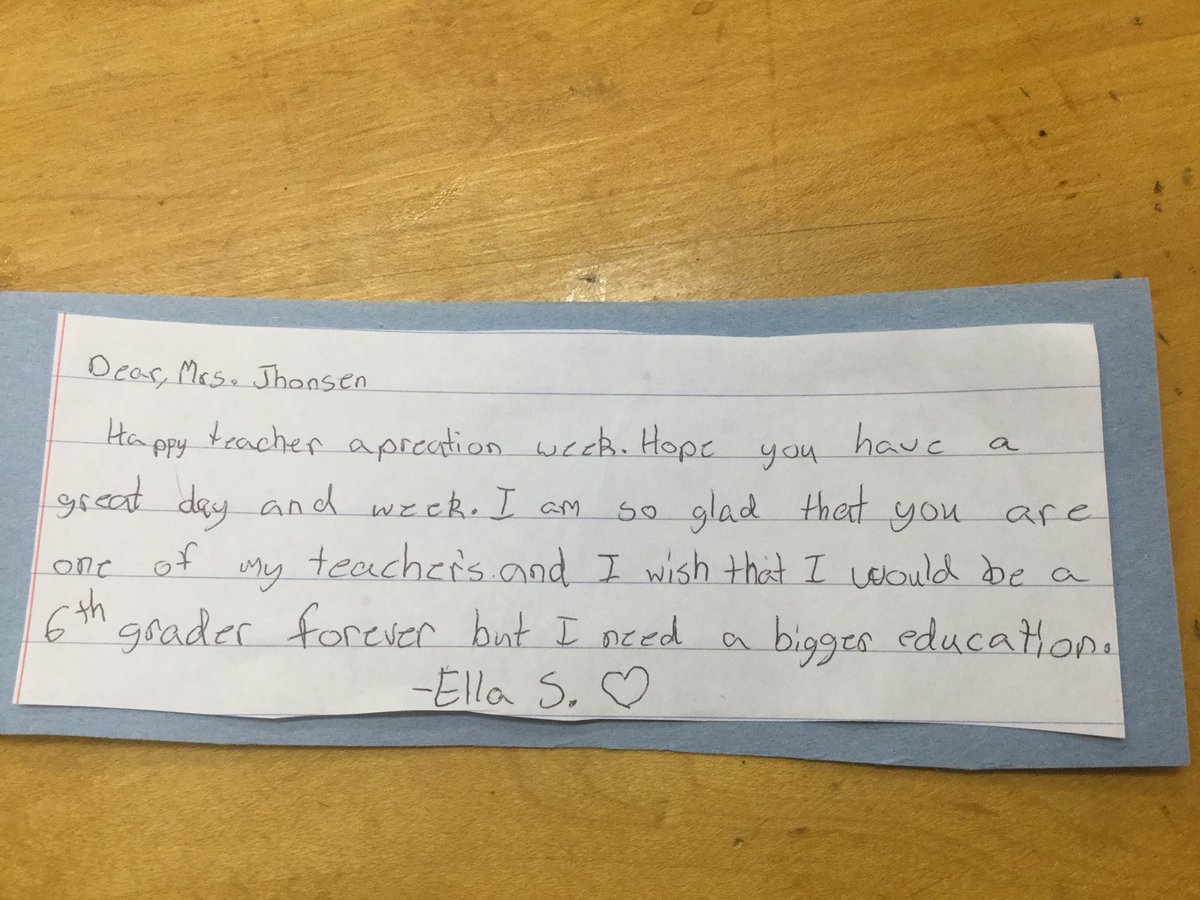 Dear, Mrs. Jhonsen
Happy teacher apreation week. Hope you have a
great day and week. I am so glad that you are
one of my teacher's. and I wish that I would be a
6th grader forever but I need a bigger education.
-Ella S. ♡